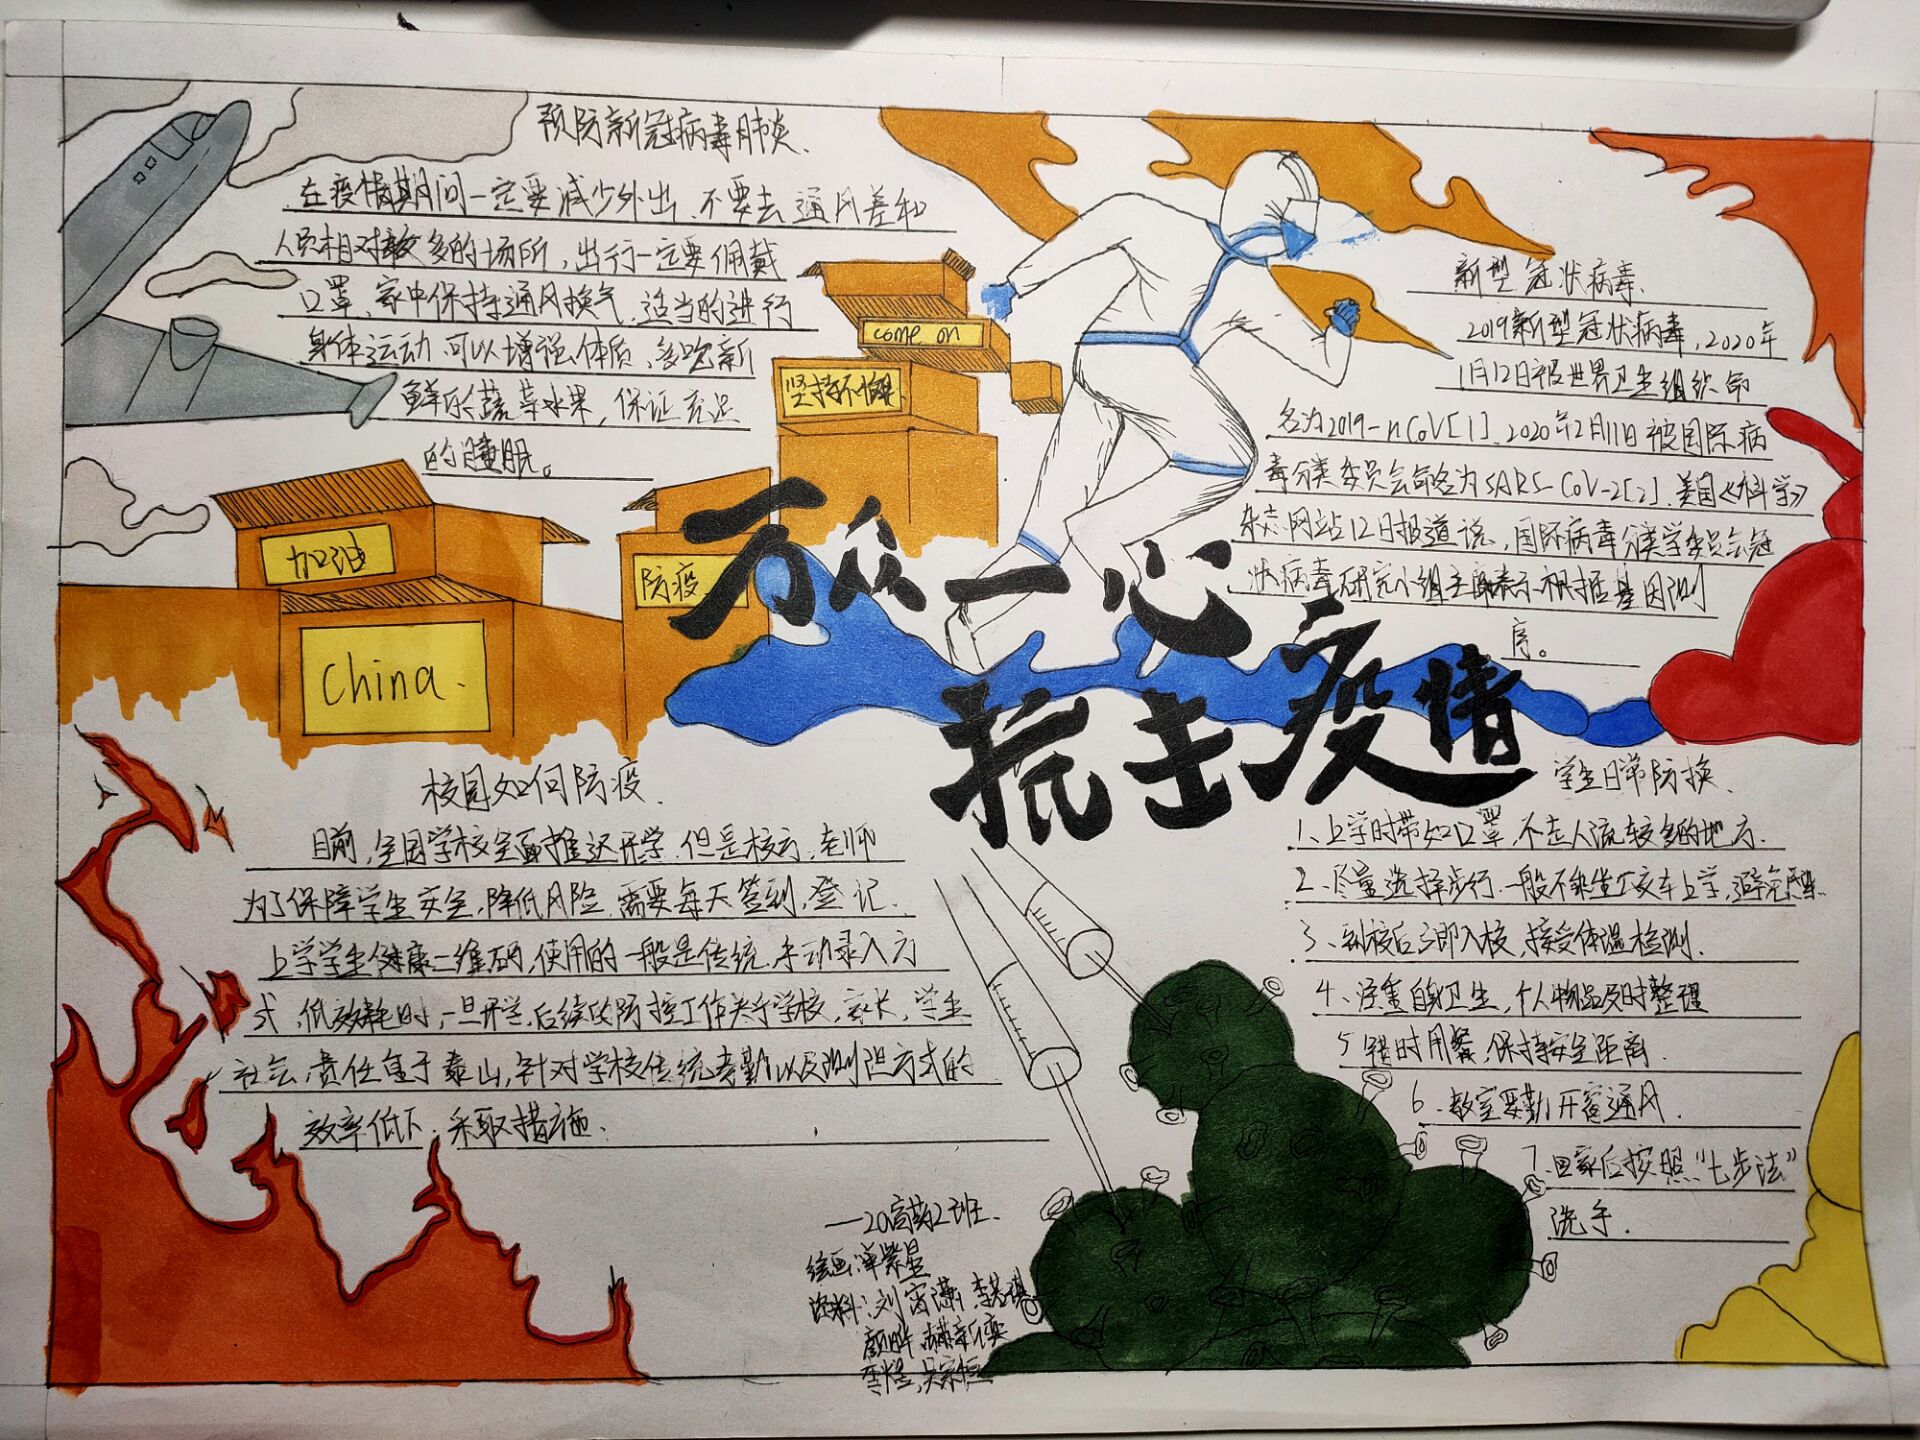 预防新冠病毒肺炎、
在疫情期间一定要减少外出、不要去通风差和
人员相对较多的场所，出行一定要佩戴
口罩、家中保持通风换气、适当的进行
身体运动、可以增强体质、多吃新
鲜的蔬菜水果，保证充足
的睡眠。
come on
坚持不懈
加油
防疫
China.
万众一心
抗击疫情
新型冠状病毒、
2019新型冠状病毒，2020年
1月12日被世界卫生组织命
名为2019-nCoV[1]、2020年2月11日被国际病
毒分类委员会命名为SARS-CoV-2[2]、美国《科学》
杂志网站12日报道说，国际病毒分类学委员会冠
状病毒研究小组主席表示根据基因测
序。
校园如何防疫、
目前，全国学校全面推迟开学、但是校方、老师
为了保障学生安全，降低风险、需要每天签到，登记、
上学学生健康二维码，使用的一般是传统、手动录入方
式，低效耗时，一旦开学，后续的防控工作关于学校，家长，学生
社会、责任重于泰山，针对学校传统考勤以及测温方式的
效率低下、采取措施、
学生日常防换、
1、上学时带好口罩、不走人流较多的地方、
2、尽量选择步行、一般不乘坐公交车上学，避免
3、到校后立即入校、接受体温检测、
4、注重自身卫生，个人物品及时整理
5、错时用餐，保持安全距离、
6、教室要勤开窗通风、
7、回家后按照“七步法”
洗手、
—20高药2班、
绘画：紫星
资料：刘